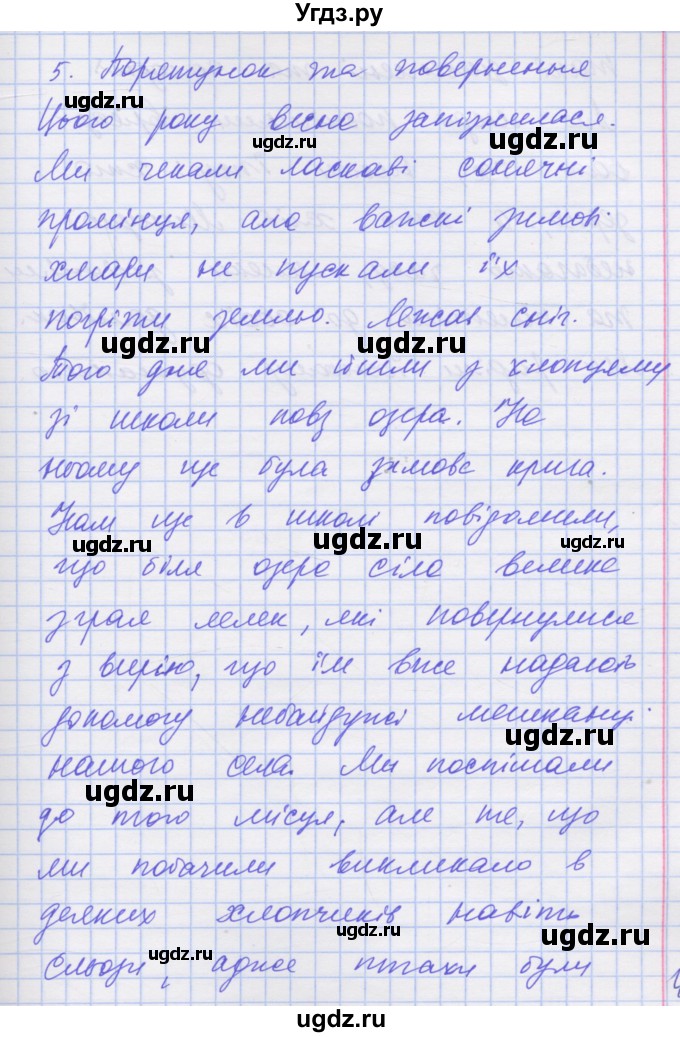 Угдз.ру
5. Порятунок та повернення
ugdz.ru ugdz.ru
Цього року весна запізнилася.
ugdz.ru
Ми чекали ласкаві сонячні
ugdz.ru ugdz.ru
промінця, але важкі зимові
хмари не пускали їх
погріти землю. Лежав сніг.
ugdz.ru ugdz.ru
Того дня ми йшли з хлопцями
зі школи повз озера. На
ugdz.ru
ньому ще була зимова крига.
Нам ще в школі повідомили,
ugdz.ru ugdz.ru ugdz.ru
що біля озера сіла велика
зграя лелек, які повернулися
ugdz.ru ugdz.ru
з вирію, що їм вже надають
допомогу небайдужі мешканці
ugdz.ru
нашого села. Ми поспішали
ugdz.ru
до того місця, але те, що
ми побачили викликало в
ugdz.ru
деяких хлопчиків навіть
ugdz.ru ugdz.ru ugdz.ru
сльози, адже птахи були
ugdz.ru